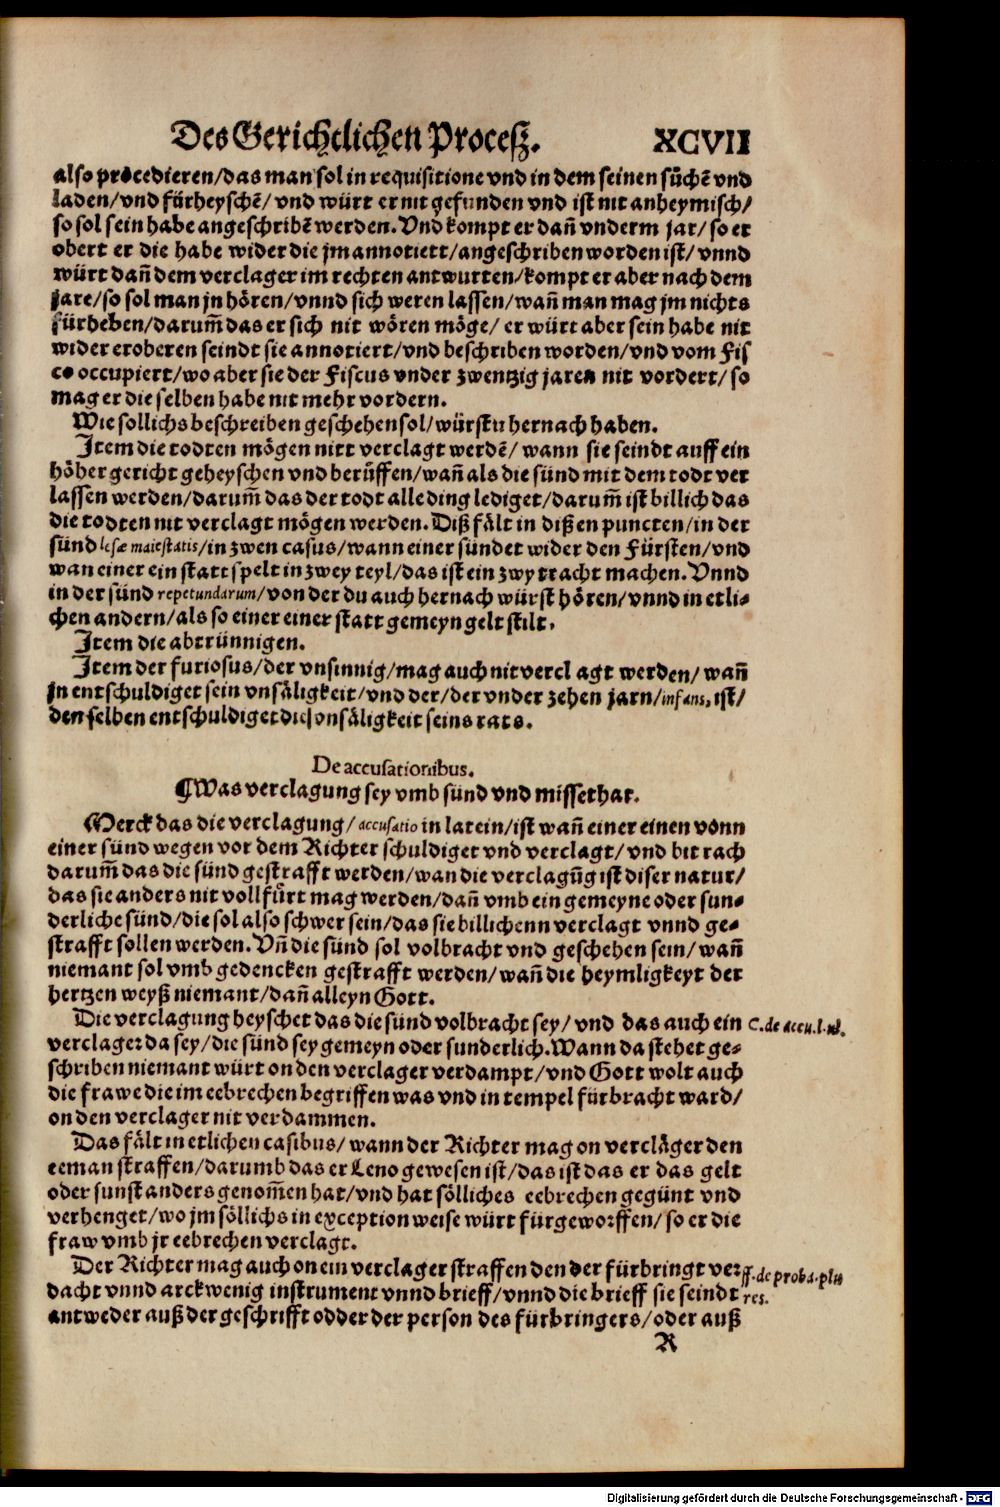 Des Gerichtlichen Proceſz. XCVII
alſo procedieren/das man ſol in requiſitione vnd in dem ſeinen ſůchẽ vnd
laden/vnd fürheyſchẽ/vnd würt er nit gefunden vnd iſt nit anheymiſch/
ſo ſol ſein habe angeſchribẽ werden. Vnd kompt er dañ vnderm jar/ſo er
obert er die habe wider die jm annotiert/angeſchriben worden iſt/vnnd
würt dañ dem verclager im rechten antwurten/kompt er aber nach dem
jare/ſo ſol man jn hören/vnnd ſich weren laſſen/wañ man mag jm nichts
fürheben/darum̃ das er ſich nit wören möge/er würt aber ſein habe nit
wider eroberen ſeindt ſie annotiert/vnd beſchriben worden/vnd vom Fiſ
co occupiert/wo aber ſie der Fiſcus vnder zwentzig jaren nit vordert/ſo
mag er die ſelben habe nit mehr vordern.
Wie ſollichs beſchreiben geſchehen ſol/würſtu hernach haben.
Item die todten mögen nitt verclagt werdẽ/wann ſie ſeindt auff ein
höher gericht geheyſchen vnd berůffen/wañ als die ſünd mit dem todt ver
laſſen werden/darum̃ das der todt alle ding lediget/darum̃ iſt billich das
die todten nit verclagt mögen werden. Diß fält in dißen puncten/in der
ſünd leſæ maieſtatis/in zwen caſus/wann einer ſündet wider den Fürſten/vnd
wan einer ein ſtatt ſpelt in zwey teyl/das iſt ein zwytracht machen. Vnnd
in der ſünd repetundarum/von der du auch hernach würſt hören/vnnd in etli⸗
chen andern/als ſo einer einer ſtatt gemeyn gelt ſtilt.
Item die abtrünnigen.
Item der furioſus/der vnſinnig/mag auch nit verclagt werden/wañ
jn entſchuldiget ſein vnſäligkeit/vnd der/der vnder zehen jarn/infans, iſt/
den ſelben entſchuldiget die vnſäligkeit ſeins rats.
De accuſationibus.
¶Was verclagung ſey vmb ſünd vnd miſſethat.
Merck das die verclagung/accuſatio in latein/iſt wañ einer einen vonn
einer ſünd wegen vor dem Richter ſchuldiget vnd verclagt/vnd bit rach
darum̃ das die ſünd geſtrafft werden/wan die verclagũg iſt diſer natur/
das ſie anders nit vollfürt mag werden/dañ vmb ein gemeyne oder ſun⸗
derliche ſünd/die ſol alſo ſchwer ſein/das ſie billichenn verclagt vnnd ge⸗
ſtrafft ſollen werden. Vñ die ſünd ſol volbracht vnd geſchehen ſein/wañ
niemant ſol vmb gedencken geſtrafft werden/wañ die heymligkeyt der
hertzen weyß niemant/dañ alleyn Gott.
Die verclagung heyſchet das die ſünd volbracht ſey/vnd das auch ein C. de accu. l. ul.
verclager da ſey/die ſünd ſey gemeyn oder ſunderlich. Wann da ſtehet ge⸗
ſchriben niemant würt on den verclager verdampt/vnd Gott wolt auch
die frawe die im eebrechen begriffen was vnd in tempel fürbracht ward/
on den verclager nit verdammen.
Das fält in etlichen caſibus/wann der Richter mag on verclåger den
eeman ſtraffen/darumb das er Leno geweſen iſt/das iſt das er das gelt
oder ſunſt anders genom̃en hat/vnd hat ſölliches eebrechen gegünt vnd
verhenget/wo jm ſöllichs in exception weiſe würt fürgeworffen/ſo er die
fraw vmb jr eebrechen verclagt.
Der Richter mag auch on ein verclager ſtraffen den der fürbringt ver⸗ ff. de proba. plu
dacht vnnd arckwenig inſtrument vnnd brieff/vnnd die brieff ſie ſeindt res.
antweder auß der geſchrifft odder der perſon des fürbringers/oder auß
R
Digitalisierung gefördert durch die Deutsche Forschungsgemeinschaft - DFG